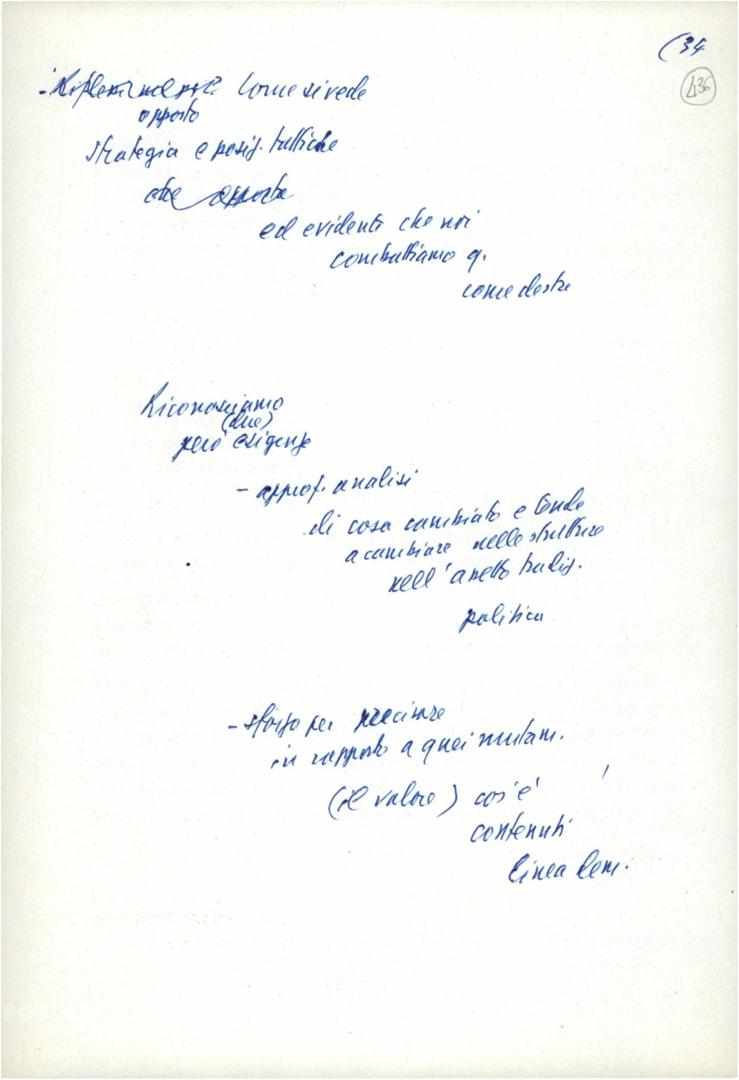 (34
436
Come si vede
opposto
strategia e posiz. tattiche
che opposte
ed evidente che noi
combattiamo q.
come destre
Riconosciamo
(due)
però esigenze
- approf. analisi
di cosa cambiato e tende
a cambiare nelle strutture
nell'assetto tradiz.
politica
- sforzo per precisare
in rapporto a quei mutam.
(il valore) cos'è
contenuti
linea Len.